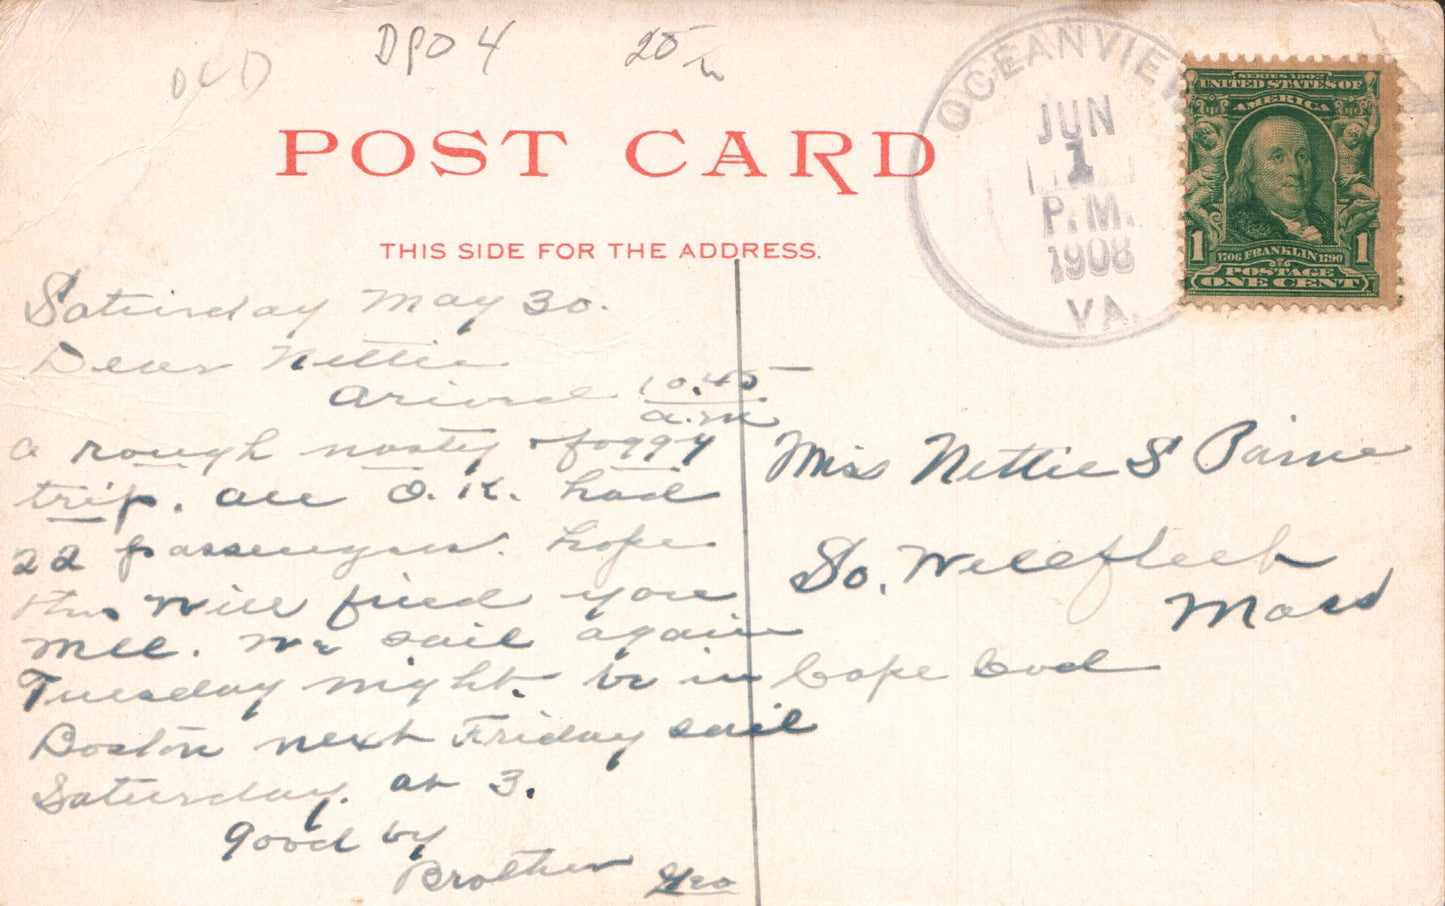 DPO 4
OCEANVIEW
JUN
1
P.M.
1908
VA.
SERIES 1902
UNITED STATES OF
AMERICA
1706 FRANKLIN 1790
1 1
POSTAGE
ONE CENT
POST CARD
THIS SIDE FOR THE ADDRESS.
Saturday May 30.
Dear Nettie
Arived 10.45
a.m
a rough nasty & foggy
trip. all O.K. had
22 passengers. hope
this will find you
well. We sail again
Tuesday night. be in
Boston next Friday sail
Saturday. at 3.
good by
Brother Geo
Miss Nettie S Paine
So. Wellfleet
Mass
Cape Cod